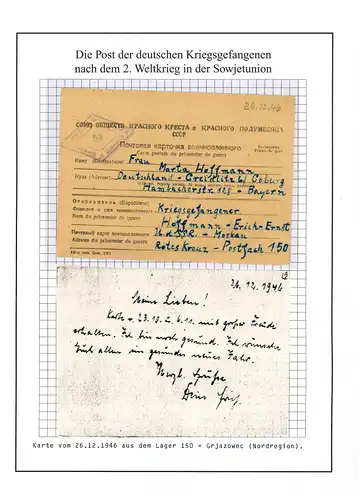 Die Post der deutschen Kriegsgefangenen
nach dem 2. Weltkrieg in der Sowjetunion
26.12.46
СОЮЗ ОБЩЕСТВ КРАСНОГО КРЕСТА и КРАСНОГО ПОЛУМЕСЯЦА
СССР
Почтовая карточка военнопленного
Carte postale du prisonnier de guerre
Бесплатно
Franc de port
Кому (Destinataire) Frau Marta Hoffmann
Куда (Adresse) Deutschland - Creidlitz b/ Coburg
Hambacherstr 128 - Bayern
Отправитель (Expéditeur)
Фамилия и имя военнопленного Kriegsgefangener
Nom du prisonnier de guerre Hoffmann - Erich - Ernst
Почтовый адрес военнопленного U.d.SSR. - Moskau
Adresse du prisonnier de guerre Rotes Kreuz - Postfach 150
26.12.1946
Meine Lieben!
Karte v. 23.10. u. 6.11. mit großer Freude
erhalten. Ich bin noch gesund. Ich wünsche
Euch allen ein gesundes neues Jahr.
Herzl. Grüße
Dein
Karte vom 26.12.1946 aus dem Lager 150 = Grjazowec (Nordregion).